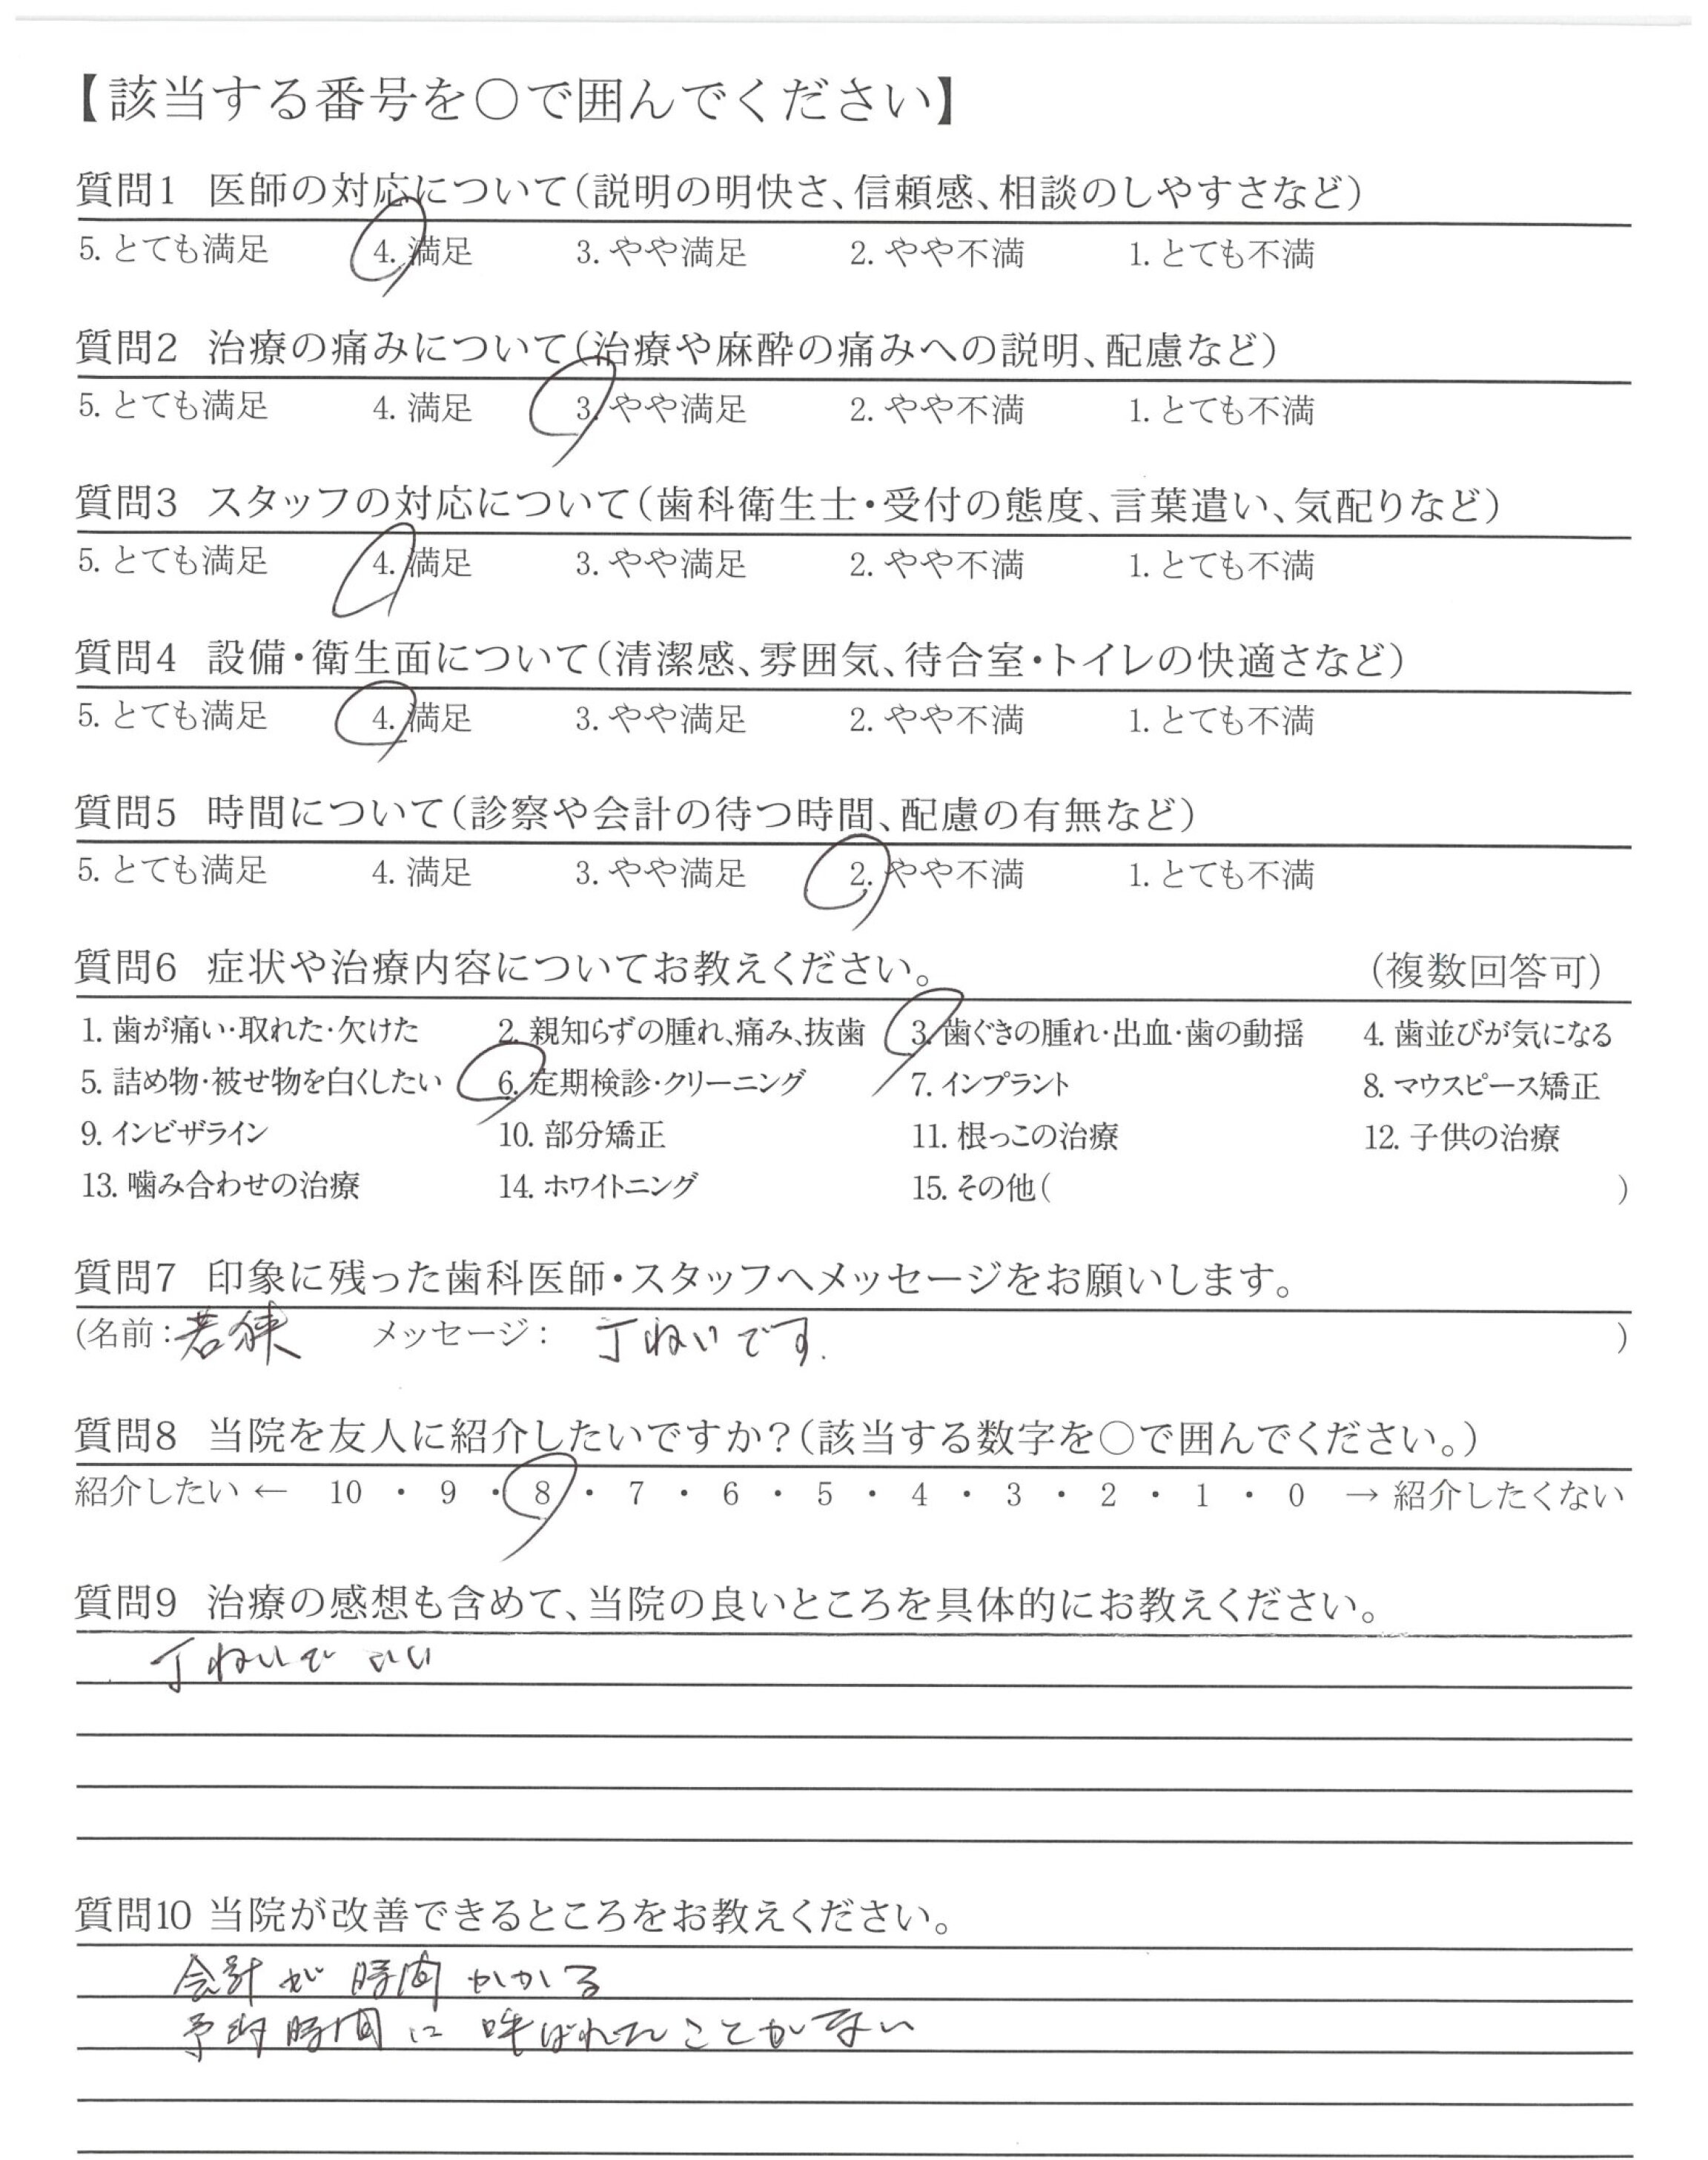 【該当する番号を○で囲んでください】
質問1 医師の対応について(説明の明快さ、信頼感、相談のしやすさなど)
5. とても満足 4. 満足 3. やや満足 2. やや不満 1. とても不満
質問2 治療の痛みについて(治療や麻酔の痛みへの説明、配慮など)
5. とても満足 4. 満足 3. やや満足 2. やや不満 1. とても不満
質問3 スタッフの対応について(歯科衛生士・受付の態度、言葉遣い、気配りなど)
5. とても満足 4. 満足 3. やや満足 2. やや不満 1. とても不満
質問4 設備・衛生面について(清潔感、雰囲気、待合室・トイレの快適さなど)
5. とても満足 4. 満足 3. やや満足 2. やや不満 1. とても不満
質問5 時間について(診察や会計の待つ時間、配慮の有無など)
5. とても満足 4. 満足 3. やや満足 2. やや不満 1. とても不満
質問6 症状や治療内容についてお教えください。 (複数回答可)
1. 歯が痛い・取れた・欠けた 2. 親知らずの腫れ、痛み、抜歯 3. 歯ぐきの腫れ・出血・歯の動揺 4. 歯並びが気になる
5. 詰め物・被せ物を白くしたい 6. 定期検診・クリーニング 7. インプラント 8. マウスピース矯正
9. インビザライン 10. 部分矯正 11. 根っこの治療 12. 子供の治療
13. 噛み合わせの治療 14. ホワイトニング 15. その他( )
質問7 印象に残った歯科医師・スタッフへメッセージをお願いします。
(名前: 若狭 メッセージ: 丁ねいです. )
質問8 当院を友人に紹介したいですか?(該当する数字を○で囲んでください。)
紹介したい ← 10 ・ 9 ・ 8 ・ 7 ・ 6 ・ 5 ・ 4 ・ 3 ・ 2 ・ 1 ・ 0 → 紹介したくない
質問9 治療の感想も含めて、当院の良いところを具体的にお教えください。
丁ねいで いい
質問10 当院が改善できるところをお教えください。
会計が時間かかる
予約時間に呼ばれたことがない